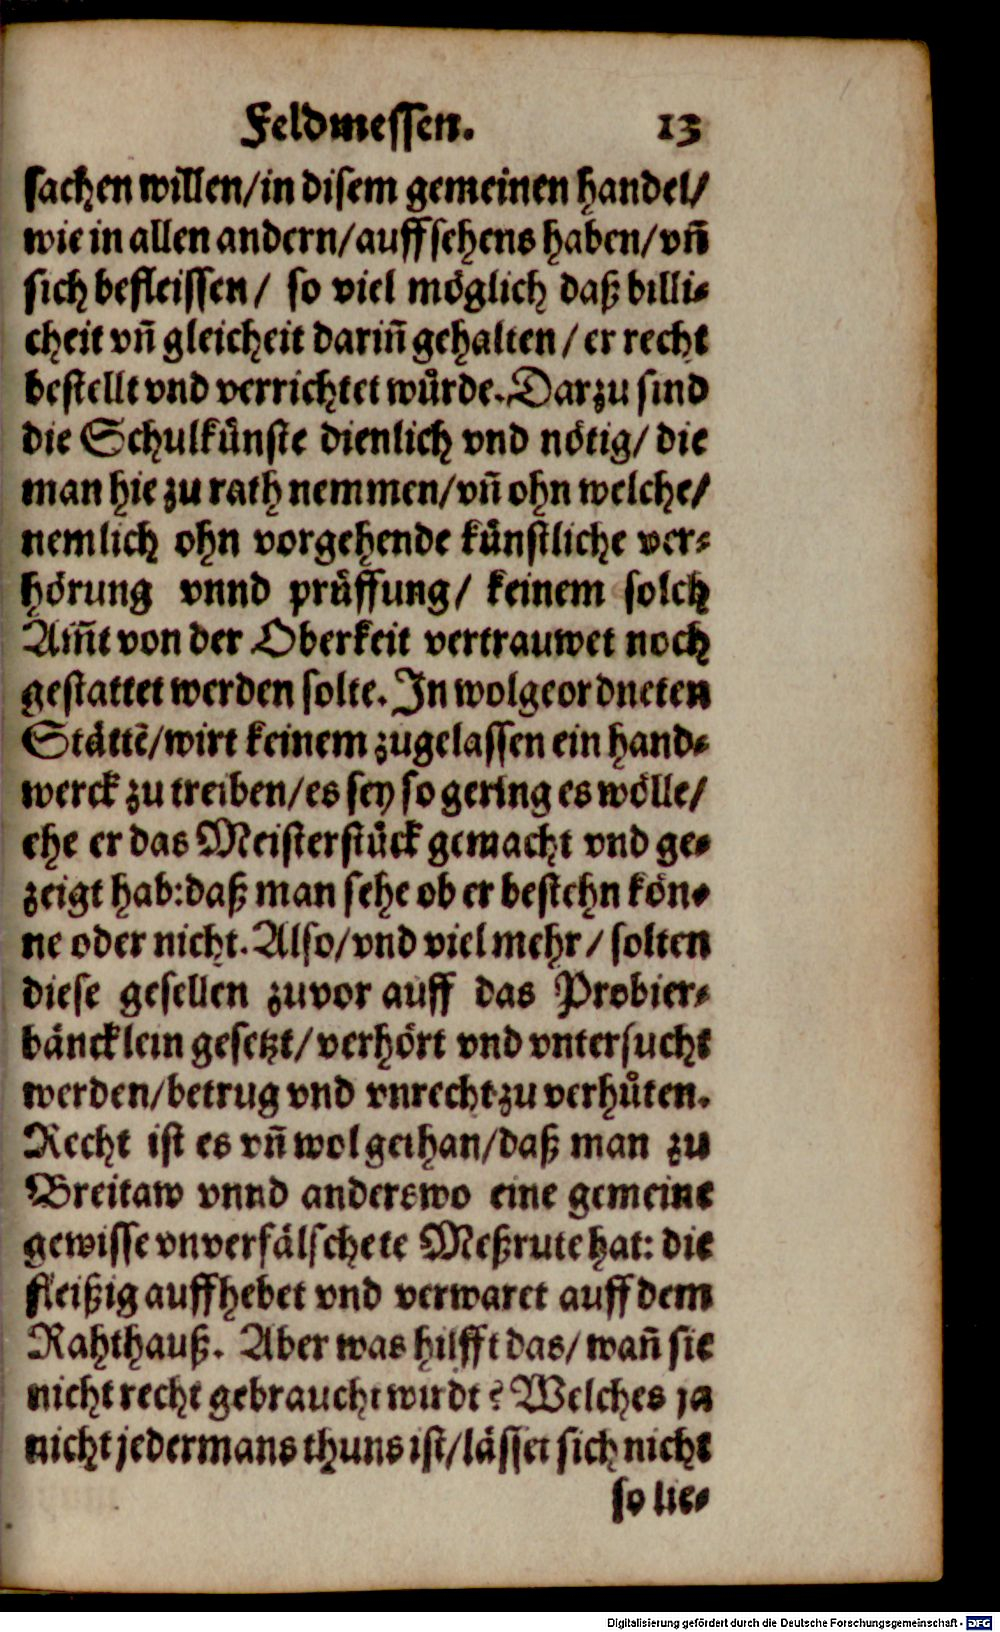 Feldmessen. 13
sachen willen/in disem gemeinen handel/
wie in allen andern/auffsehens haben/vn̄
sich befleissen/ so viel möglich daß billi⸗
cheit vn̄ gleicheit darin̄ gehalten/ er recht
bestellt vnd verrichtet würde. Darzu sind
die Schulkünste dienlich vnd nötig/ die
man hie zu rath nemmen/vn̄ ohn welche/
nemlich ohn vorgehende künstliche ver⸗
hörung vnnd prüffung/ keinem solch
Am̄t von der Oberkeit vertrauwet noch
gestattet werden solte. In wolgeordneten
Stättē/wirt keinem zugelassen ein hand⸗
werck zu treiben/es sey so gering es wölle/
ehe er das Meisterstück gemacht vnd ge⸗
zeigt hab:daß man sehe ob er bestehn kön⸗
ne oder nicht. Also/vnd viel mehr/ solten
diese gesellen zuvor auff das Probier⸗
bäncklein gesetzt/verhört vnd vntersucht
werden/betrug vnd vnrecht zu verhůten.
Recht ist es vn̄ wol gethan/daß man zu
Breitaw vnnd anderswo eine gemeine
gewisse vnverfälschete Meßrute hat: die
fleißig auffhebet vnd verwaret auff dem
Rahthauß. Aber was hilfft das/wan̄ sie
nicht recht gebraucht wirdt? Welches ja
nicht jedermans thuns ist/lässet sich nicht
so lie⸗
Digitalisierung gefördert durch die Deutsche Forschungsgemeinschaft - DFG